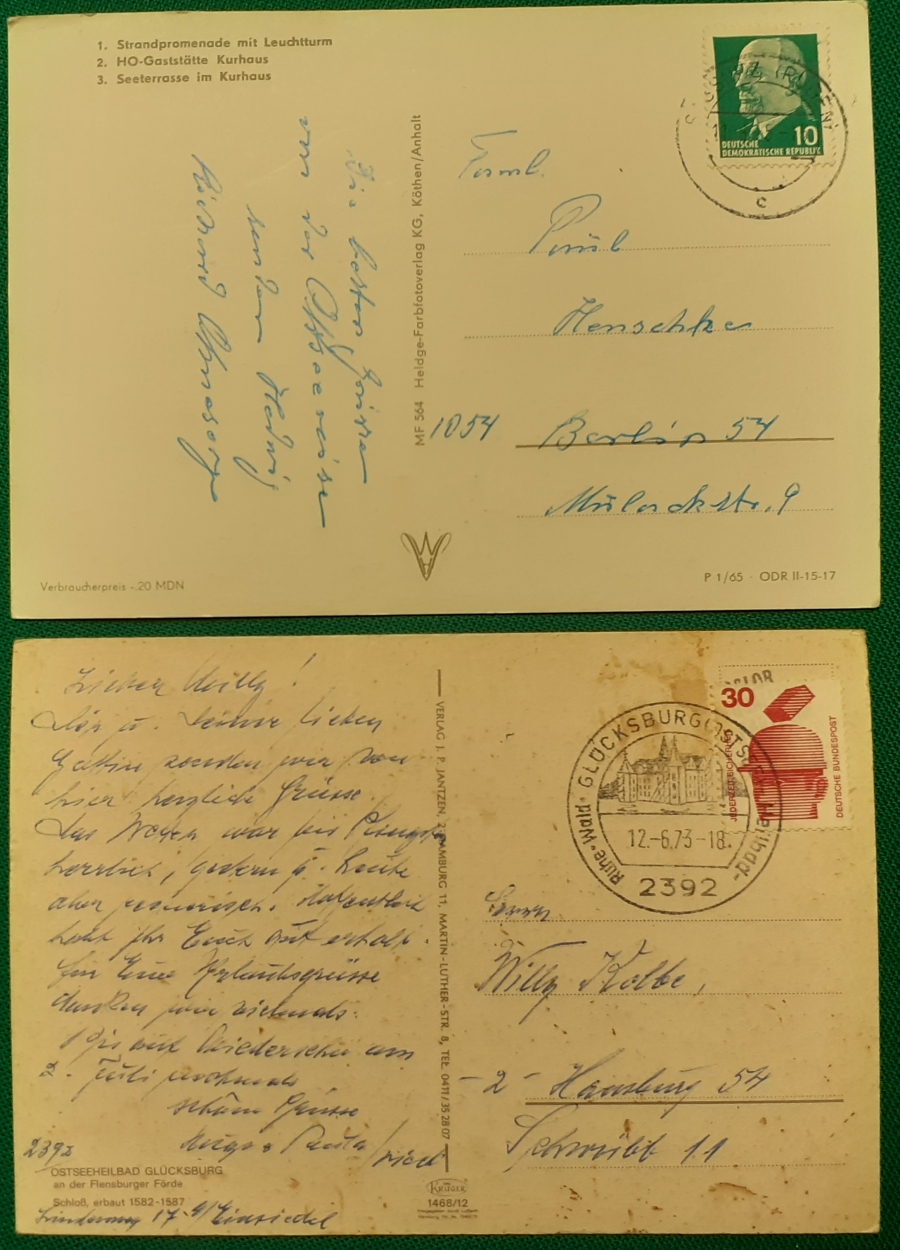 1. Strandpromenade mit Leuchtturm
2. HO-Gaststätte Kurhaus
3. Seeterrasse im Kurhaus
Die besten Grüsse
von der Ostseereise
senden
Richard
MF 564 Heldge-Farbfotoverlag KG, Köthen/Anhalt
10
DEUTSCHE
DEMOKRATISCHE REPUBLIK
c
Faml.
Paul
Henschke
1054 Berlin 54
Mulackstr. 9
Verbraucherpreis -.20 MDN
P 1/65 · ODR II-15-17
Lieber Willy!
Dir u. Deiner lieben
Gattin senden wir von
hier herzliche Grüsse
Das war bis
herrlich, gestern u. heute
aber regnerisch. Hoffentlich
habt Ihr Euch gut erholt.
Für Eure Urlaubsgrüsse
danken wir vielmals.
Wiedersehn am
2. Juli nochmals
schöne Grüsse
2392
OSTSEEHEILBAD GLÜCKSBURG
an der Flensburger Förde
Schloß, erbaut 1582-1587
VERLAG J. P. JANTZEN, 2 HAMBURG 11, MARTIN-LUTHER-STR. 8, TEL. 0411/35 28 07
KRÜGER
1468/12
30
JEDERZEIT SICHERHEIT
DEUTSCHE BUNDESPOST
GLÜCKSBURG
Ruhe · Wald
12.-6.73-18.
2392
Herrn
Willy Kolbe,
-2- Hamburg 54
11